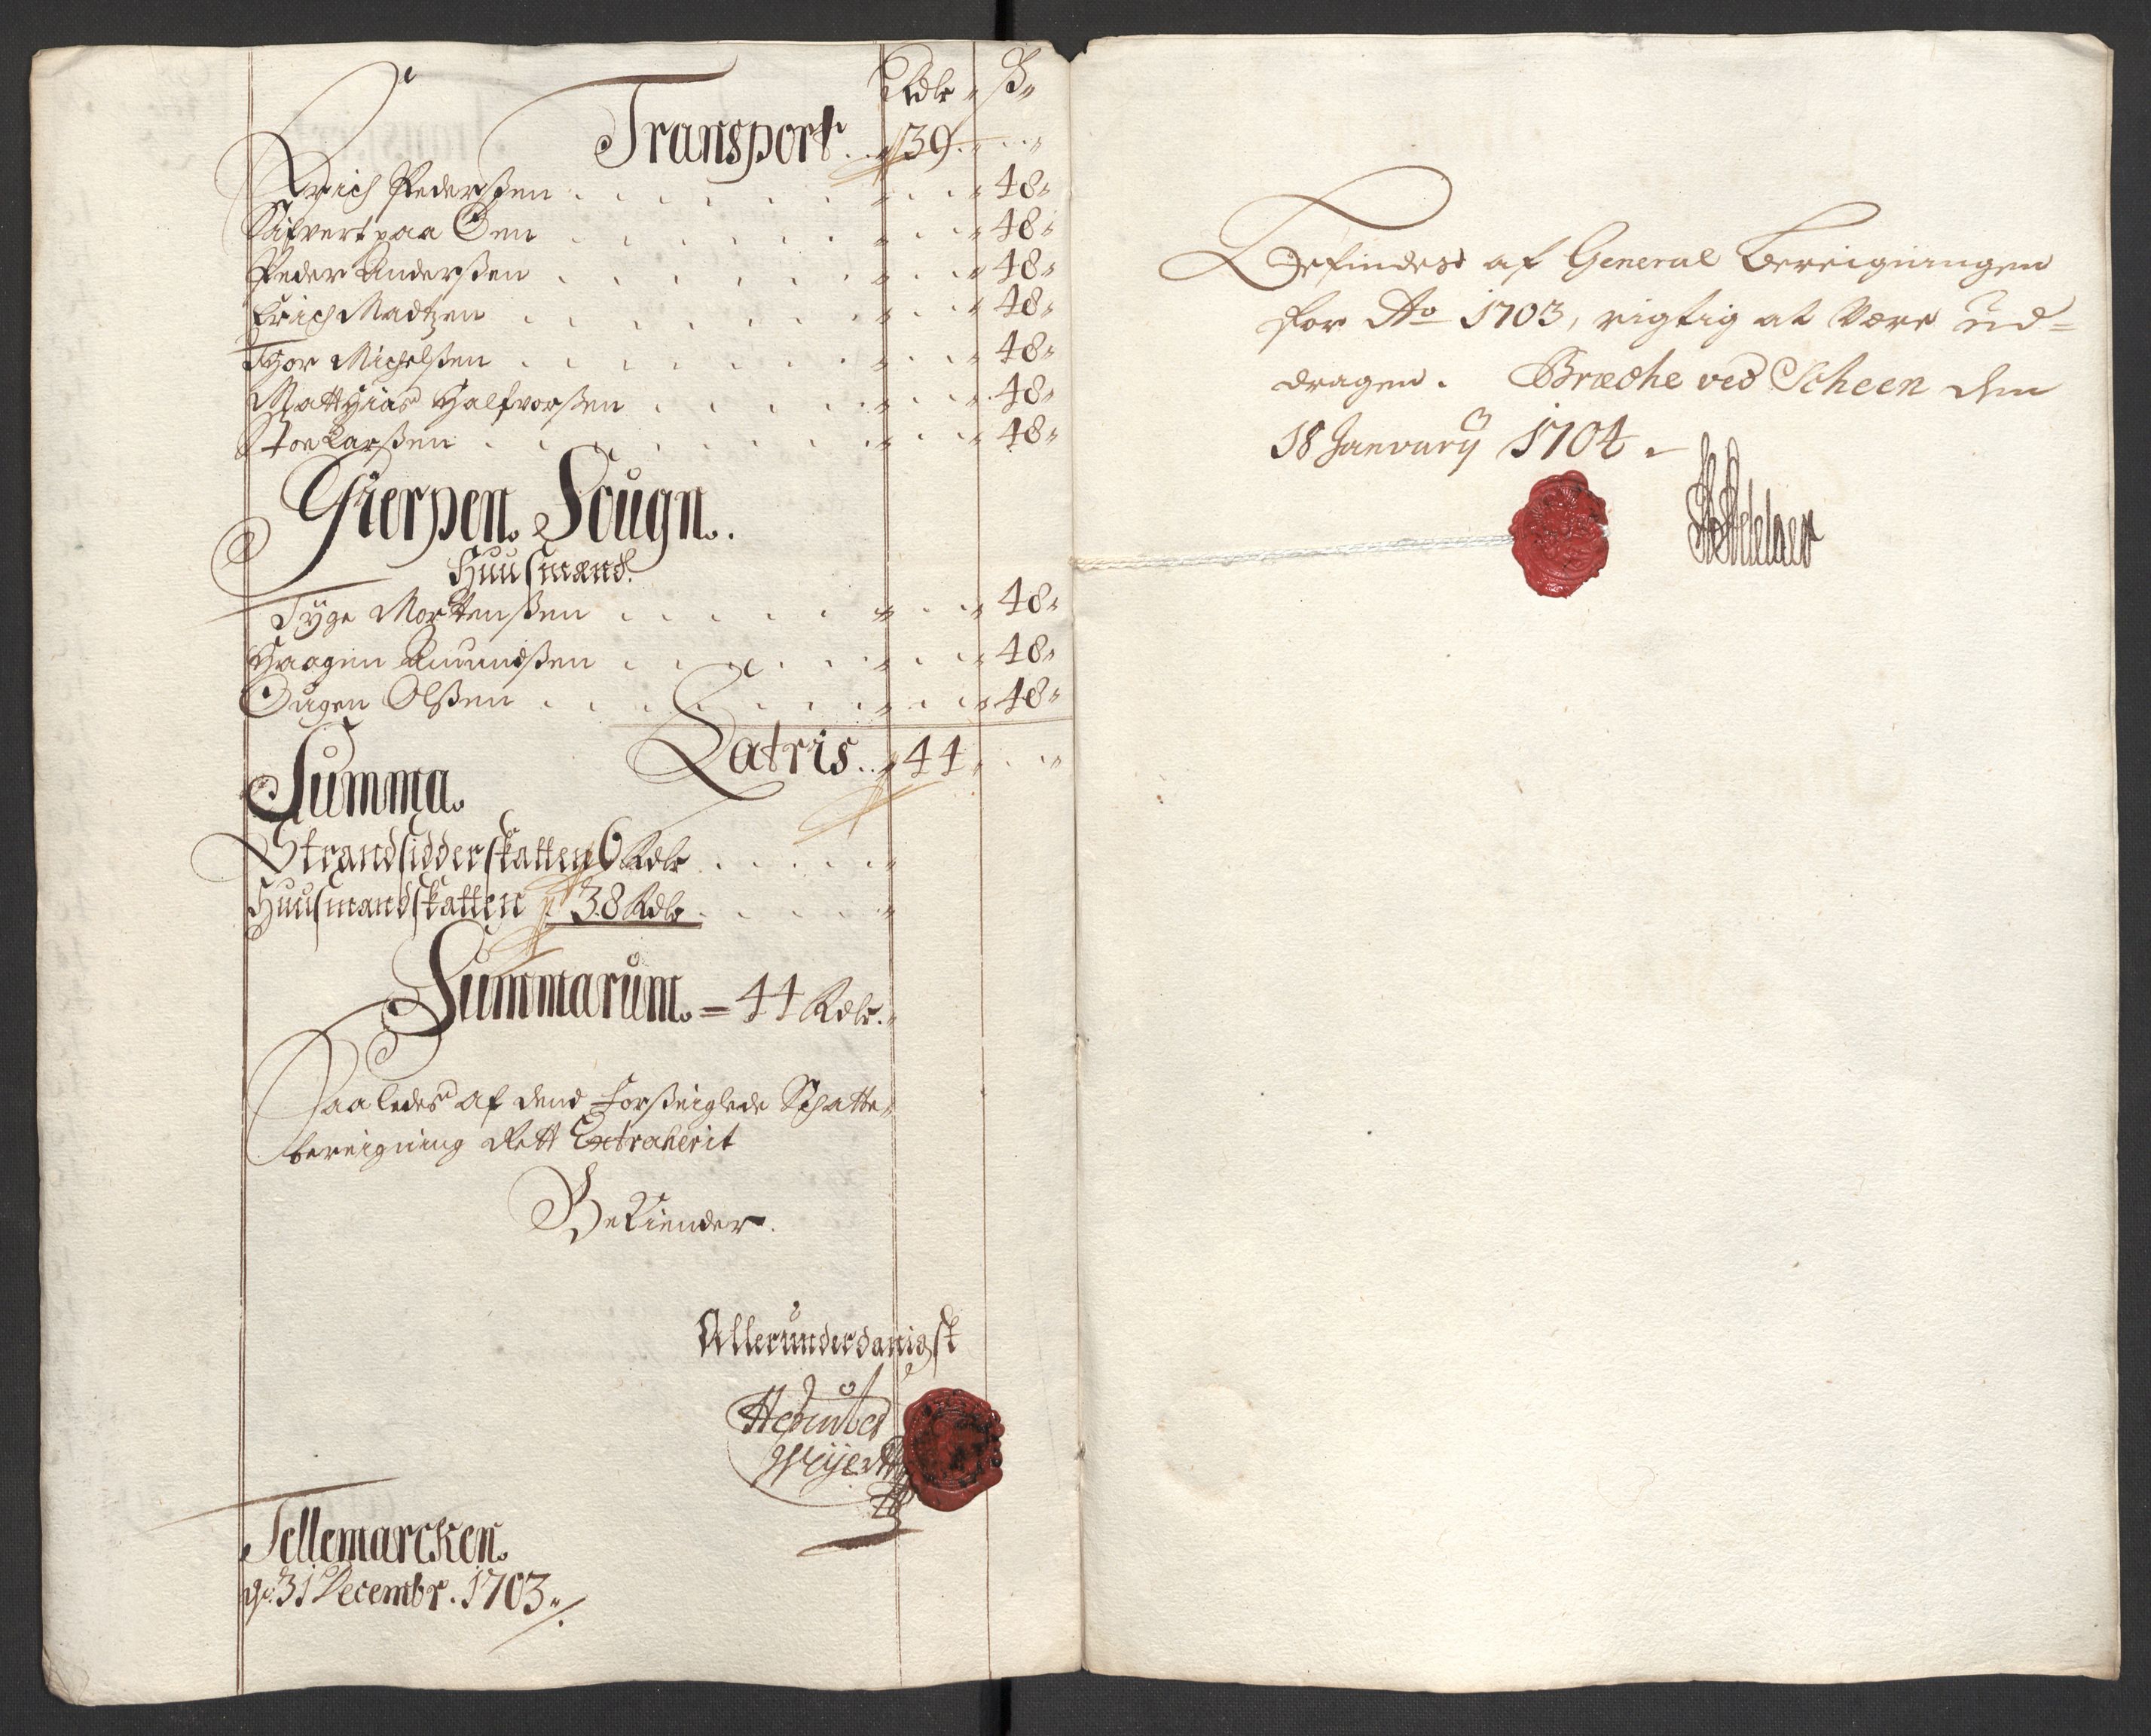 Rdlr ß
Transport. 39
Erich Pederßen 48
Sifvert paa Øen 48
Peder Anderßen 48
Erich Madtzen 48
Thor Michelßen 48
Matthias Halfvorßen 48
Joe Larßen 48
Gierpen Sougn.
Huusmænd.
Tyge Mortenßen 48
Haagen Amundßen 48
Ougen Olßen 48
Latris 44
Summa.
Strandsidderskatten 6 Rdlr
Huusmandskatten 38 Rdlr
Summarum. = 44 Rdlr.
Saaledes af dend Forßeiglede Schatte,
bereigning Rett Extraherit
Bekiender.
Allerunderdanigst
Tellemarcken.
dn: 31 Decembr. 1703
Befindes af General Bereigningen
for Ao 1703, rigtig at være ud=
dragen. Bratche ved Scheen den
18 Januarij 1704
Adelaer